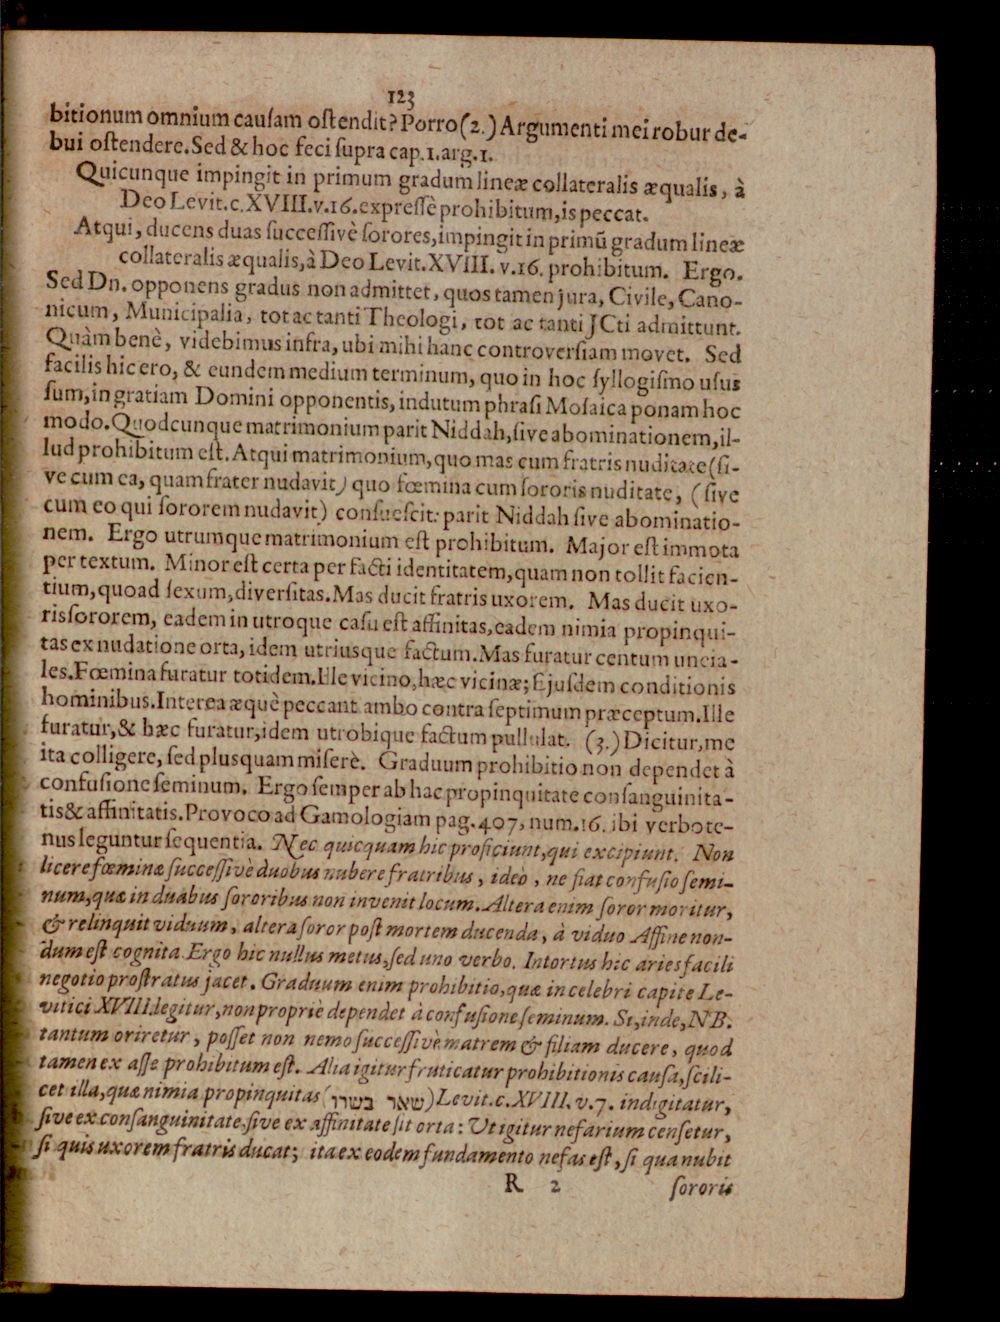 123
bitionum omnium cauſam oſtendit? Porro (2.) Argumenti mei robur de-
bui oſtendere. Sed & hoc feci ſupra cap. 1. arg. 1.
Quicunque impingit in primum gradum lineæ collateralis æqualis, à
Deo Levit. c. XVIII. v. 16. expreſſè prohibitum, is peccat.
Atqui, ducens duas ſucceſſivè ſorores, impingit in primũ gradum lineæ
collateralis æqualis, à Deo Levit. XVIII. v. 16. prohibitum. Ergo.
Sed Dn. opponens gradus non admittet, quos tamen jura, Civile, Cano-
nicum, Municipalia, tot ac tanti Theologi, tot ac tanti JCti admittunt.
Quàm benè, videbimus infra, ubi mihi hanc controverſiam movet. Sed
facilis hic ero, & eundem medium terminum, quo in hoc ſyllogiſmo uſus
ſum, in gratiam Domini opponentis, indutum phraſi Moſaica ponam hoc
modo. Quodcunque matrimonium parit Niddah, ſive abominationem, il-
lud prohibitum eſt. Atqui matrimonium, quo mas cum fratris nuditate (ſi-
ve cum ea, quam frater nudavit) quo fœmina cum ſororis nuditate, (ſive
cum eo qui ſororem nudavit) conſueſcit: parit Niddah ſive abominatio-
nem. Ergo utrumque matrimonium eſt prohibitum. Major eſt immota
per textum. Minor eſt certa per facti identitatem, quam non tollit facien-
tium, quoad ſexum, diverſitas. Mas ducit fratris uxorem. Mas ducit uxo-
ris ſororem, eadem in utroque caſu eſt affinitas, eadem nimia propinqui-
tas ex nudatione orta, idem utriusque factum. Mas furatur centum uncia-
les. Fœmina furatur totidem. Ille vicino, hæc vicinæ; Ejuſdem conditionis
hominibus. Interea æquè peccant ambo contra ſeptimum præceptum. Ille
furatur, & hæc furatur, idem utrobique factum pullulat. (3.) Dicitur, me
ita colligere, ſed plusquam miſerè. Graduum prohibitio non dependet à
confuſione ſeminum. Ergo ſemper ab hac propinquitate conſanguinita-
tis & affinitatis. Provoco ad Gamologiam pag. 407, num. 16. ibi verbote-
nus leguntur ſequentia. Nec quicquam hic proficiunt, qui excipiunt. Non
licere fœminæ ſucceſſivè duobus nubere fratribus, ideò, ne fiat confuſio ſemi-
num, quæ in duabus ſororibus non invenit locum. Altera enim ſoror moritur,
& relinquit viduum, altera ſoror poſt mortem ducenda, à viduo Affine non-
dum eſt cognita. Ergo hic nullus metus, ſed uno verbo. Intortus hic aries facili
negotio proſtratus jacet. Graduum enim prohibitio, quæ in celebri capite Le-
vitici XVIII. legitur, non propriè dependet à confuſione ſeminum. Si, inde, NB.
tantum oriretur, poſſet non nemo ſucceſſivè matrem & filiam ducere, quod
tamen ex aſſe prohibitum eſt. Alia igitur fruticatur prohibitionis cauſa, ſcili-
cet illa, quæ nimia propinquitas (שאר בשרו) Levit. c. XVIII. v. 7. indigitatur,
ſive ex conſanguinitate, ſive ex affinitate ſit orta: Ut igitur nefarium cenſetur,
ſi quis uxorem fratris ducat; ita ex eodem fundamento nefas eſt, ſi qua nubit
R 2 ſororis